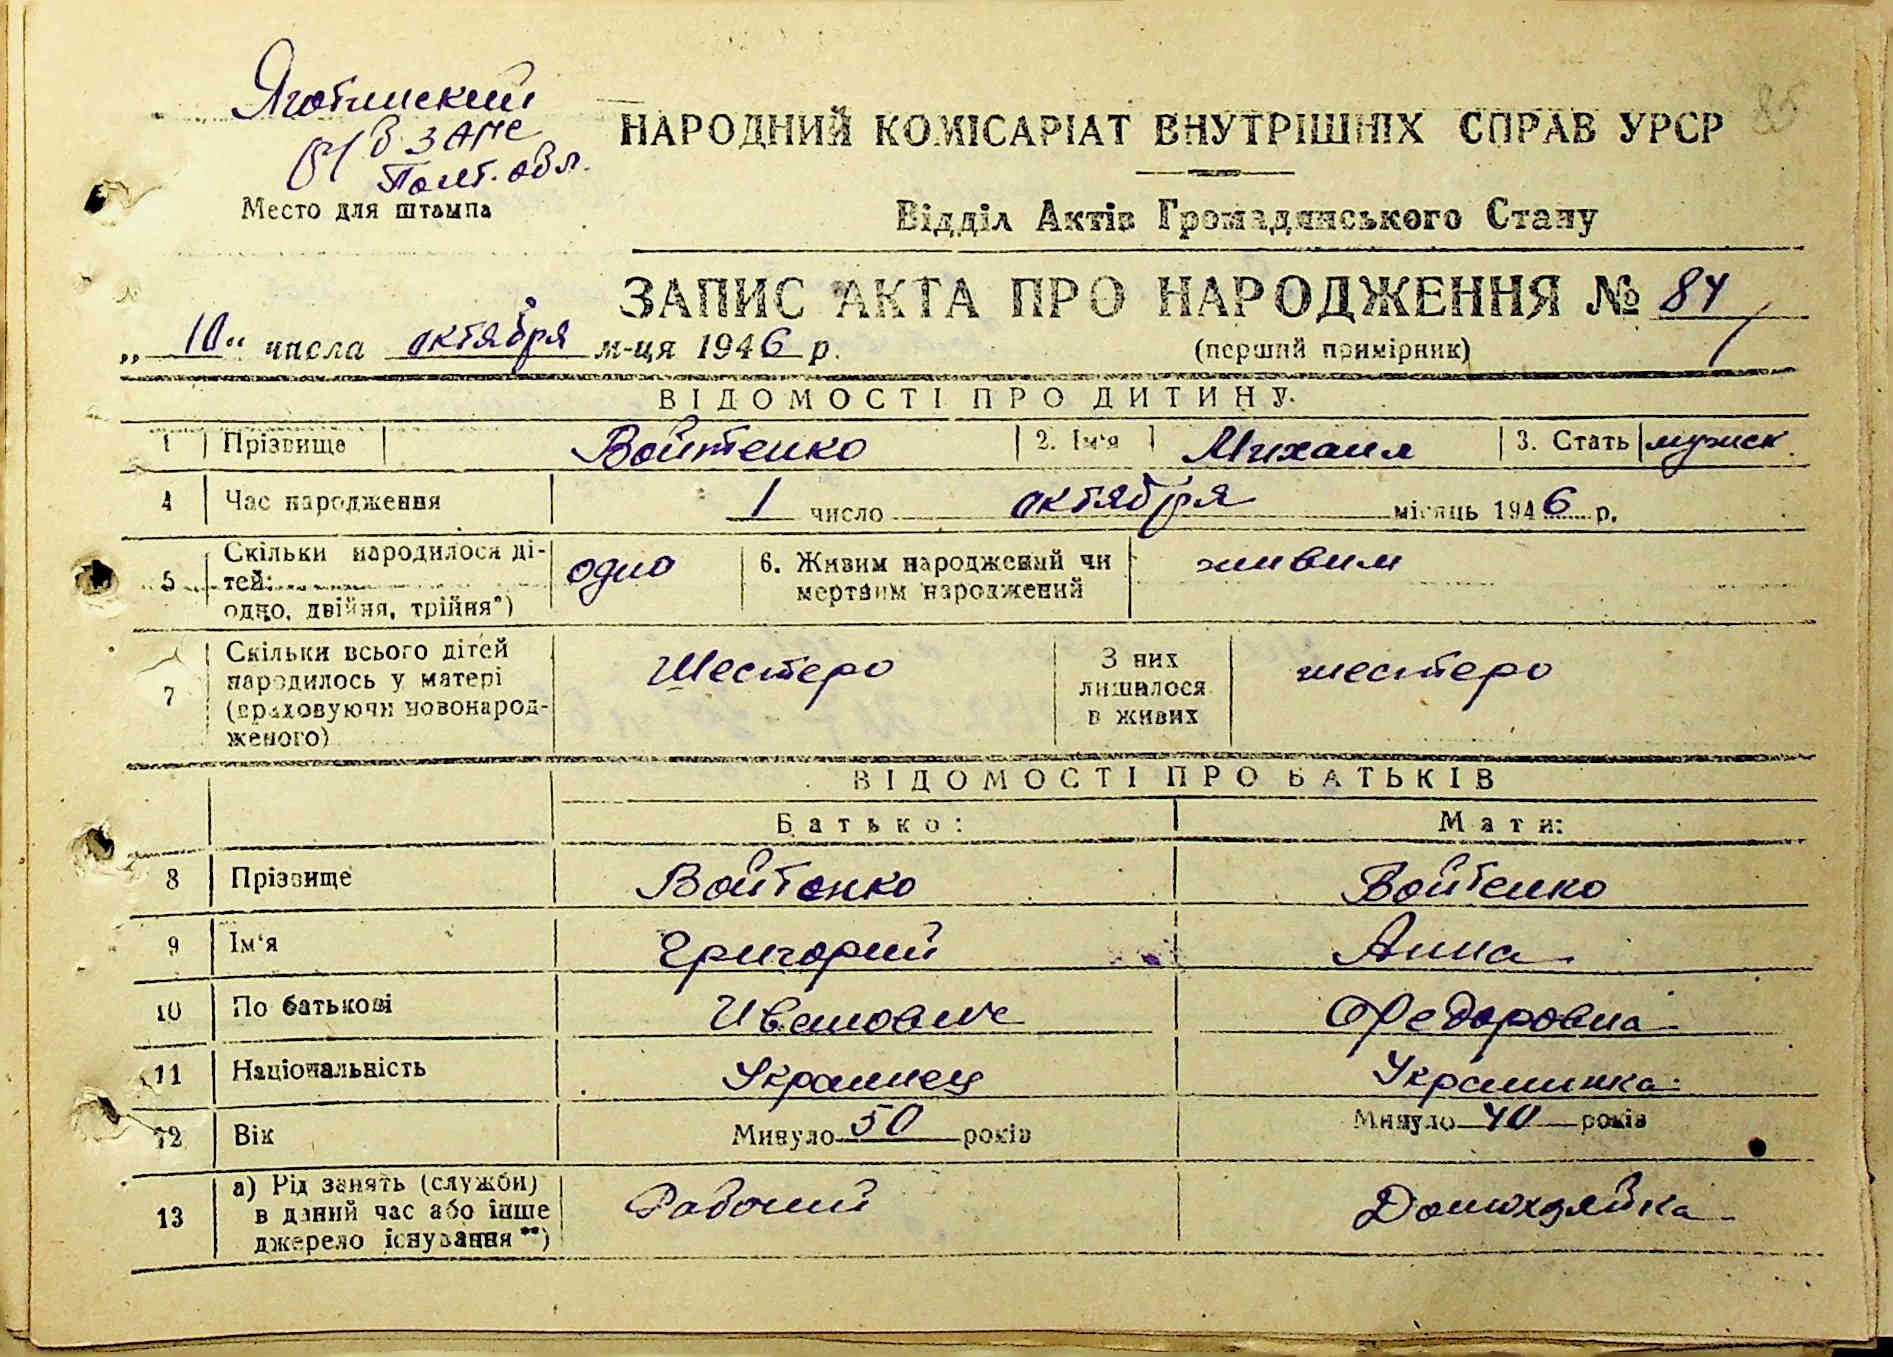 Яготинский
р/в ЗАГС
Полт. обл.
Место для штампа
85
НАРОДНИЙ КОМІСАРІАТ ВНУТРІШНІХ СПРАВ УРСР
Відділ Актів Громадянського Стану
ЗАПИС АКТА ПРО НАРОДЖЕННЯ № 84
„10“ числа октября м-ця 1946 р.
(перший примірник)
ВІДОМОСТІ ПРО ДИТИНУ.
1 Прізвище Войтенко 2. Ім'я Михаил 3. Стать мужск
4 Час народження 1 число октября місяць 1946 р.
5 Скільки народилося ді-
тей:
одно, двійня, трійня*)
одно
6. Живим народжений чи
мертвим народжений
живим
7 Скільки всього дітей
народилось у матері
(враховуючи новонарод-
женого)
Шестеро
З них
лишилося
в живих
шестеро
ВІДОМОСТІ ПРО БАТЬКІВ
Батько: Мати:
8 Прізвище Войтенко Войтенко
9 Ім'я Григорий Анна
10 По батькові Иванович Федоровна
11 Національність Украинец Украинка
12 Вік Минуло 50 років Минуло 40 років
13 а) Рід занять (служби)
в даний час або інше
джерело існування**)
Рабочий Домохозяйка